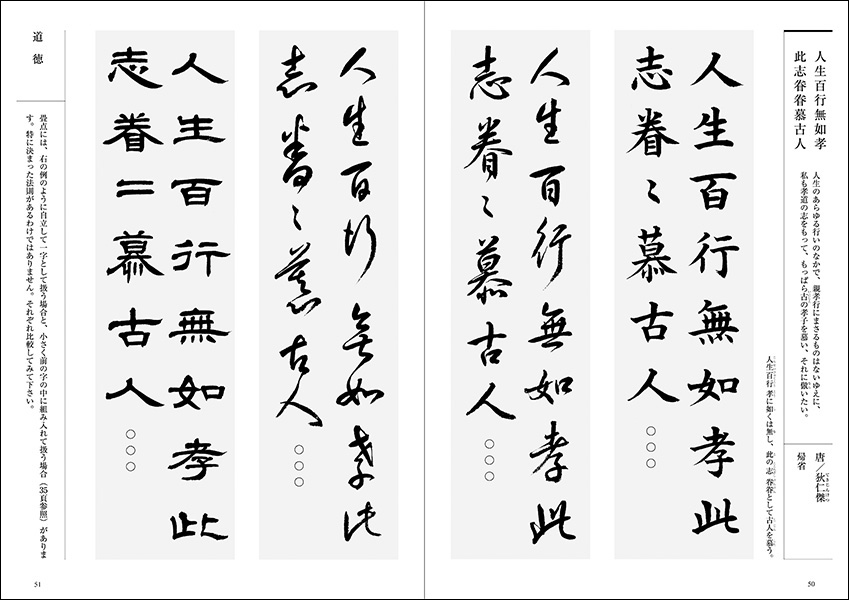 人生百行無如孝
此志眷眷慕古人
人生のあらゆる行いのなかで、親孝行にまさるものはないゆえに、
私も孝道の志をもって、もっぱら古の孝子を慕い、それに倣いたい。
人生百行 孝に如くは無し、此の志 眷眷として古人を慕う。
唐／狄仁傑
帰省
人生百行無如孝此
志眷〻慕古人○○○
人生百行無如孝此
志眷〻慕古人○○○
50
人生百行無如孝此
志眷〻慕古人○○○
人生百行無如孝此
志眷〻慕古人○○○
道徳
畳点には、右の例のように自立して一字として扱う場合と、小さく前の字の中に組み入れて扱う場合（35頁参照）がありま
す。特に決まった法則があるわけではありません。それぞれ比較してみて下さい。
51